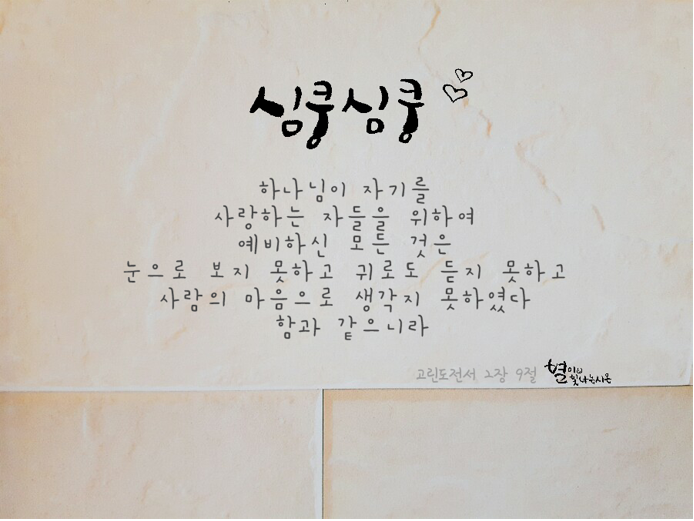 심쿵심쿵
하나님이 자기를
사랑하는 자들을 위하여
예비하신 모든 것은
눈으로 보지 못하고 귀로도 듣지 못하고
사람의 마음으로 생각지 못하였다
함과 같으니라
고린도전서 2장 9절
별이
빛나는시온